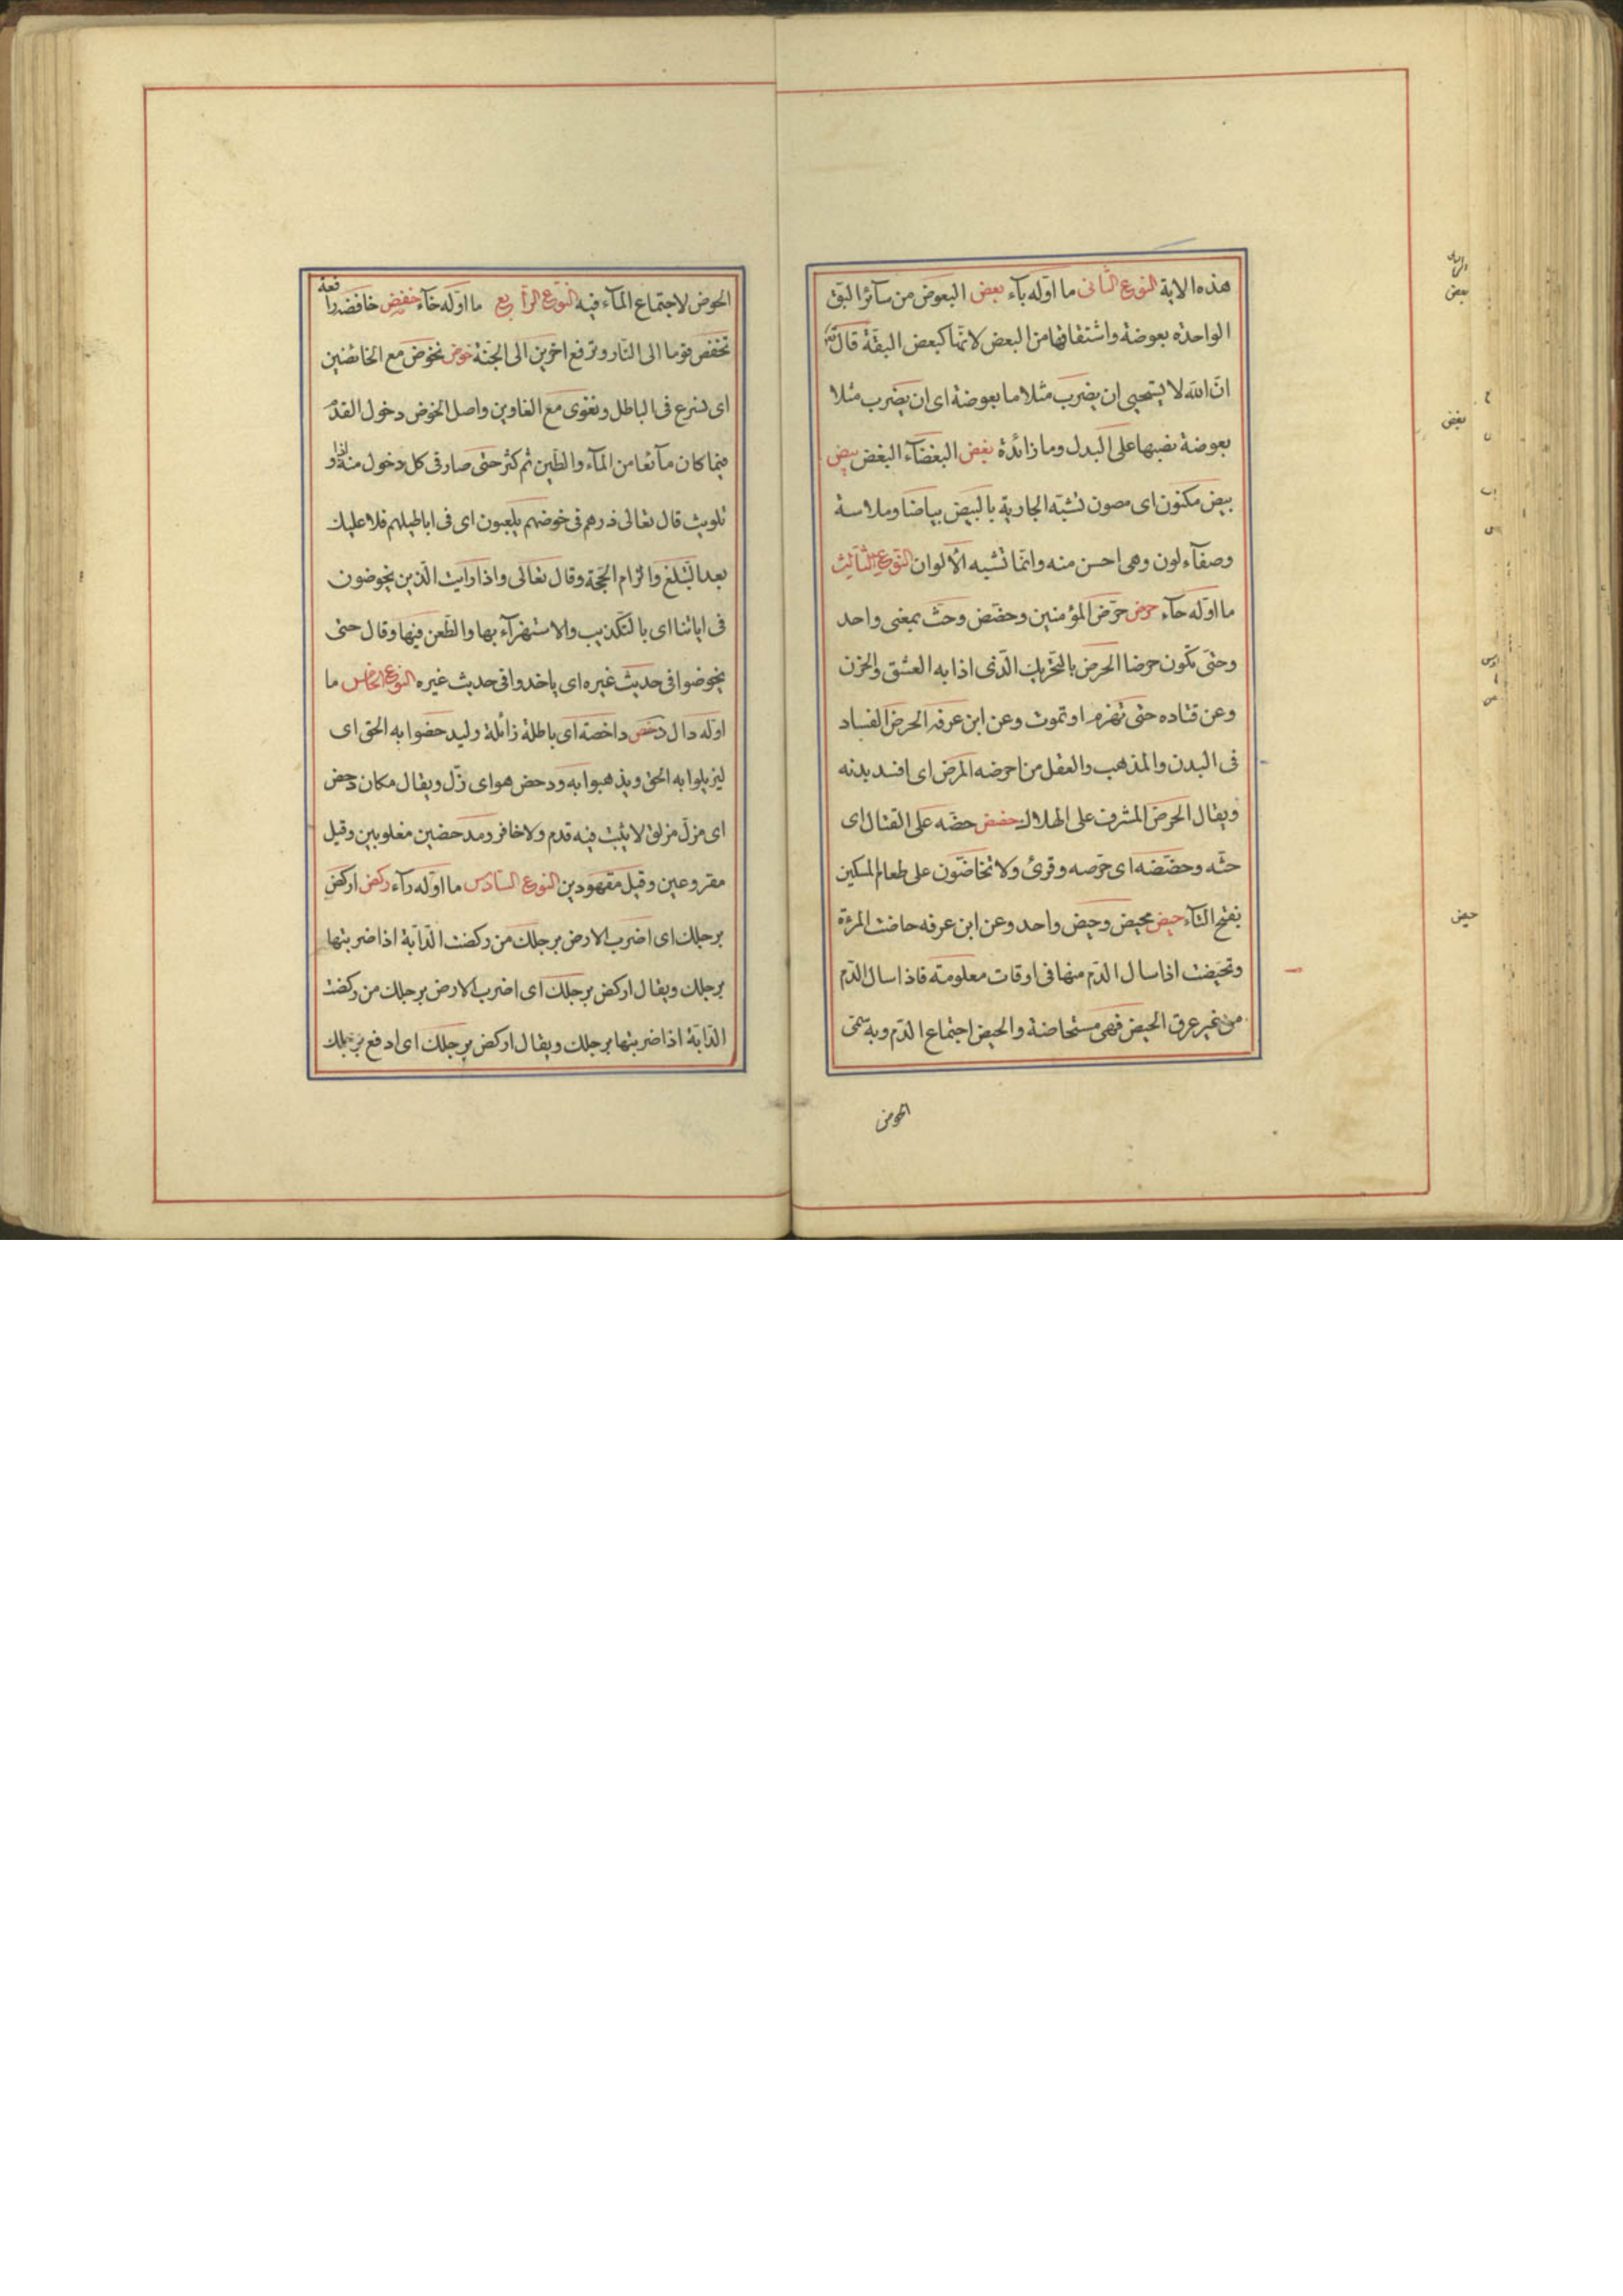 هذه الاية النوع الثانى ما اوّله بآء بعض البعوض من سآئر البق
الواحدة بعوضة واشتقاقها من البعض لانّها كبعض البقّة قال تعه
انّ الله لا يستحيى ان يضرب مثلا ما بعوضة اى ان يضرب مثلا
بعوضة نصبها على البدل وما زائدة بغض البغضآء البغض بيض
بيض مكنون اى مصون تشبّه الجارية بالبيض بياضا وملاسة
وصفآء لون وهى احسن منه وانّما تشبه الألوان النّوع الثّالث
ما اوّله حآء حرض حرّض المؤمنين وحضّض وحثّ بمعنى واحد
وحتّى تكون حرضا الحرض بالتحريك الّذى اذابه العشق والحزن
وعن قتاده حتى تهرم او تموت وعن ابن عرفه الحرض الفساد
فى البدن والمذهب والعقل من احرضه المرض اى افسد بدنه
ويقال الحرض المشرف على الهلاك حضض حضّه على القتال اى
حثّه وحضّضه اى حرّصه وقرئ ولا تخاضّون على طعام المسكين
بفتح التآء حيض محيض وحيض واحد وعن ابن عرفه حاضت المرئة
وتحيّضت اذا سال الدّم منها فى اوقات معلومة فاذا سال الدّم
من غير عرق الحيض فهى مستحاضة والحيض اجتماع الدّم وبه سمّى
الحوض
بعض
بغض
حيض
الحوض لاجتماع المآء فيه النّوع الرّابع ما اوّله خآء خفض خافضة را
فعة
تخفض قوما الى النّار وترفع اخرين الى الجنّة خوض نخوض مع الخائضين
اى نشرع فى الباطل ونغوى مع الغاوين واصل الخوض دخول القدم
فيما كان مآئعا من المآء والطّين ثم كثر حتى صار فى كل دخول منه اذا و
تلويث قال تعالى ذرهم فى خوضهم يلعبون اى فى اباطيلهم فلا عليك
بعد التّبلّغ والزام الحجّة وقال تعالى واذا رايت الّذين يخوضون
فى اياتنا اى بالتّكذيب والاستهزآء بها والطّعن فيها وقال حتى
يخوضوا فى حديث غيره اى ياخدوا فى حديث غيره النّوع الخامس ما
اوّله دال دحض داحضة اى باطلة زائلة وليدحضوا به الحق اى
ليزيلوا به الحق ويذهبوا به ودحض هو اى زلّ ويقال مكان دحض
اى مزلّ مزلق لا يثبت فيه قدم ولا خافر ومدحضين مغلوبين وقيل
مقروعين وقيل مقهودين النّوع السّادس ما اوّله رآء ركض اركض
برجلك اى اضرب الارض برجلك من ركضت الدّآبة اذا ضربتها
برجلك ويقال اركض برجلك اى اضرب الارض برجلك من ركضت
الدّآبة اذا ضربتها برجلك ويقال اركض برجلك اى ادفع برجلك